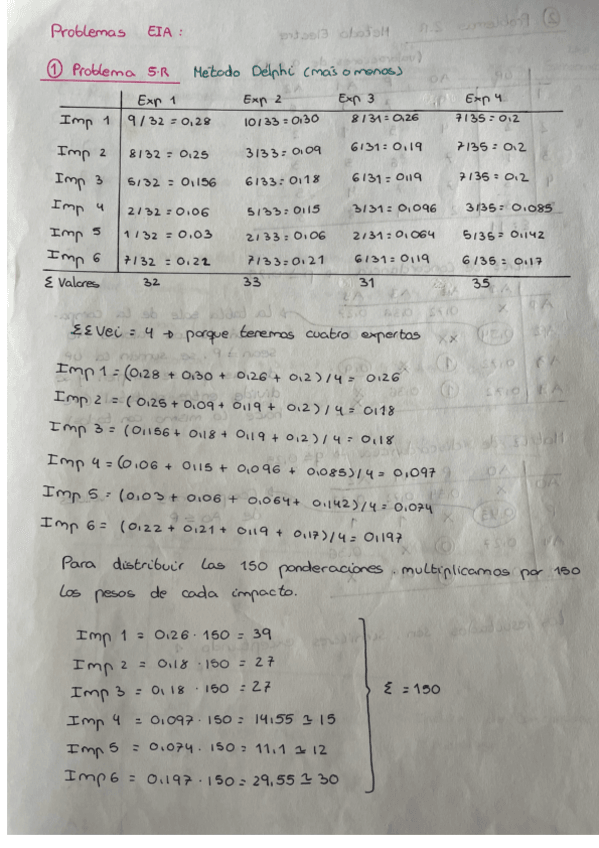 Problemas EIA:
① Problema 5.R Método Delphi (más o menos)
Exp 1 Exp 2 Exp 3 Exp 4
Imp 1 9/32 = 0,28 10/33 = 0,30 8/31 = 0,26 7/35 = 0,2
Imp 2 8/32 = 0,25 3/33 = 0,09 6/31 = 0,19 7/35 = 0,2
Imp 3 5/32 = 0,156 6/33 = 0,18 6/31 = 0,19 7/35 = 0,2
Imp 4 2/32 = 0,06 5/33 = 0,15 3/31 = 0,096 3/35 = 0,085
Imp 5 1/32 = 0,03 2/33 = 0,06 2/31 = 0,064 5/35 = 0,142
Imp 6 7/32 = 0,22 7/33 = 0,21 6/31 = 0,19 6/35 = 0,17
Σ Valores 32 33 31 35
ΣΣVei = 4 → porque tenemos cuatro expertos
Imp 1 = (0,28 + 0,30 + 0,26 + 0,2)/4 = 0,26
Imp 2 = (0,25 + 0,09 + 0,19 + 0,2)/4 = 0,18
Imp 3 = (0,156 + 0,18 + 0,19 + 0,2)/4 = 0,18
Imp 4 = (0,06 + 0,15 + 0,096 + 0,085)/4 = 0,097
Imp 5 = (0,03 + 0,06 + 0,064 + 0,142)/4 = 0,074
Imp 6 = (0,22 + 0,21 + 0,19 + 0,17)/4 = 0,197
Para distribuir las 150 ponderaciones multiplicamos por 150
los pesos de cada impacto.
Imp 1 = 0,26 · 150 = 39
Imp 2 = 0,18 · 150 = 27
Imp 3 = 0,18 · 150 = 27
Σ = 150
Imp 4 = 0,097 · 150 = 14,55 ≃ 15
Imp 5 = 0,074 · 150 = 11,1 ≃ 12
Imp 6 = 0,197 · 150 = 29,55 ≃ 30